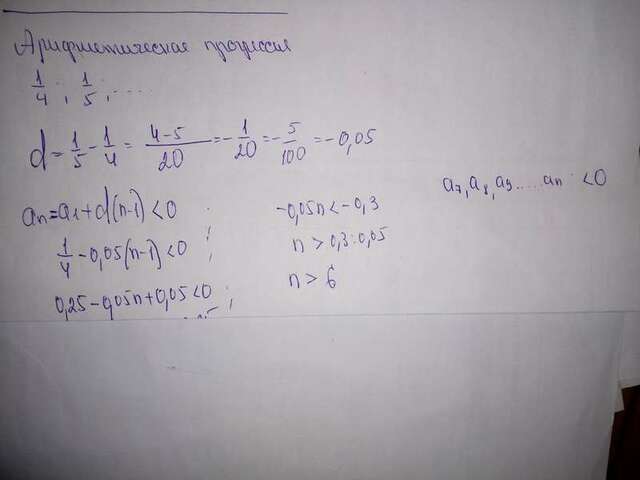 Арифметическая прогрессия
1/4; 1/5; ....
d = 1/5 - 1/4 = (4-5)/20 = -1/20 = -5/100 = -0,05
an = a1 + d(n-1) < 0
1/4 - 0,05(n-1) < 0;
0,25 - 0,05n + 0,05 < 0;
-0,05n < -0,3
n > 0,3:0,05
n > 6
a7, a8, a9......an < 0